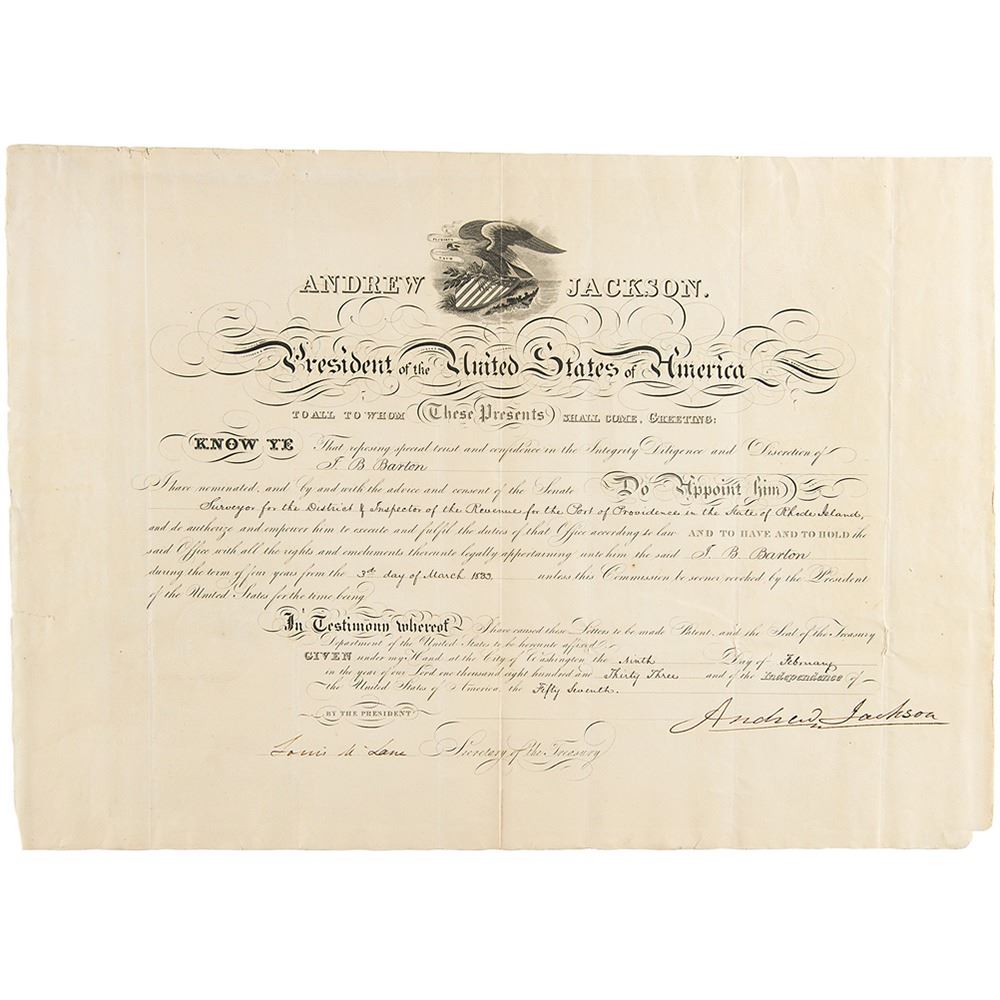 E PLURIBUS
UNUM
ANDREW JACKSON.
President of the United States of America
TO ALL TO WHOM These Presents SHALL COME, GREETING:
KNOW YE That reposing special trust and confidence in the Integrity Diligence and Discretion of
I. B. Barton
I have nominated, and by and with the advice and consent of the Senate Do Appoint him
Surveyor for the District & Inspector of the Revenue for the Port of Providence in the State of Rhode Island,
and do authorize and empower him to execute and fulfil the duties of that Office according to law AND TO HAVE AND TO HOLD the
said Office with all the rights and emoluments thereunto legally appertaining unto him the said I. B. Barton
during the term of four years from the 3rd day of March 1833, unless this Commission be sooner revoked by the President
of the United States for the time being
In Testimony whereof I have caused these Letters to be made Patent, and the Seal of the Treasury
Department of the United States to be hereunto affixed
GIVEN under my Hand at the City of Washington the Ninth Day of February
in the year of our Lord one thousand eight hundred and Thirty Three and of the Independence of
the United States of America, the Fifty Seventh.
BY THE PRESIDENT
Andrew Jackson
Louis McLane Secretary of the Treasury